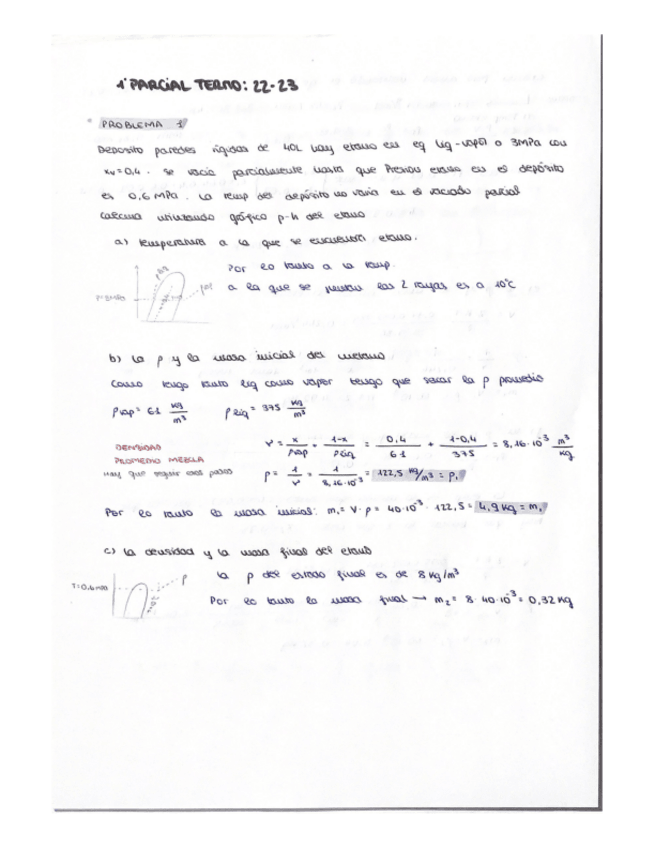 1º PARCIAL TERMO: 22-23
PROBLEMA 1
Deposito paredes rigidas de 40L hay etano en eq liq-vapor a 3MPa con
xv=0,4. se vacia parcialmente hasta que Presion etano en el depósito
es 0,6 MPa. La temp del depósito no varia en el vaciado parcial
calcula utilizando gráfico p-h del etano
a) temperatura a la que se encuentra etano.
Por lo tanto a la temp.
a la que se juntan las 2 rayas es a 10°C
b) la ρ y la masa inicial del metano.
Como tengo tanto liq como vapor tengo que sacar la ρ promedio
ρvap = 61 kg/m³ ρliq = 375 kg/m³
DENSIDAD
PROMEDIO MEZCLA
hay que seguir esos pasos
v = x/ρvap + 1-x/ρliq = 0,4/61 + 1-0,4/375 = 8,16·10⁻³ m³/kg
ρ = 1/v = 1/8,16·10⁻³ = 122,5 kg/m³ = ρ₁
Por lo tanto la masa inicial: m₁ = V·ρ = 40·10⁻³ · 122,5 = 4,9 kg = m₁
c) la densidad y la masa final del etano
la ρ del estado final es de 8 kg/m³
Por lo tanto la masa final → m₂ = 8·40·10⁻³ = 0,32 kg